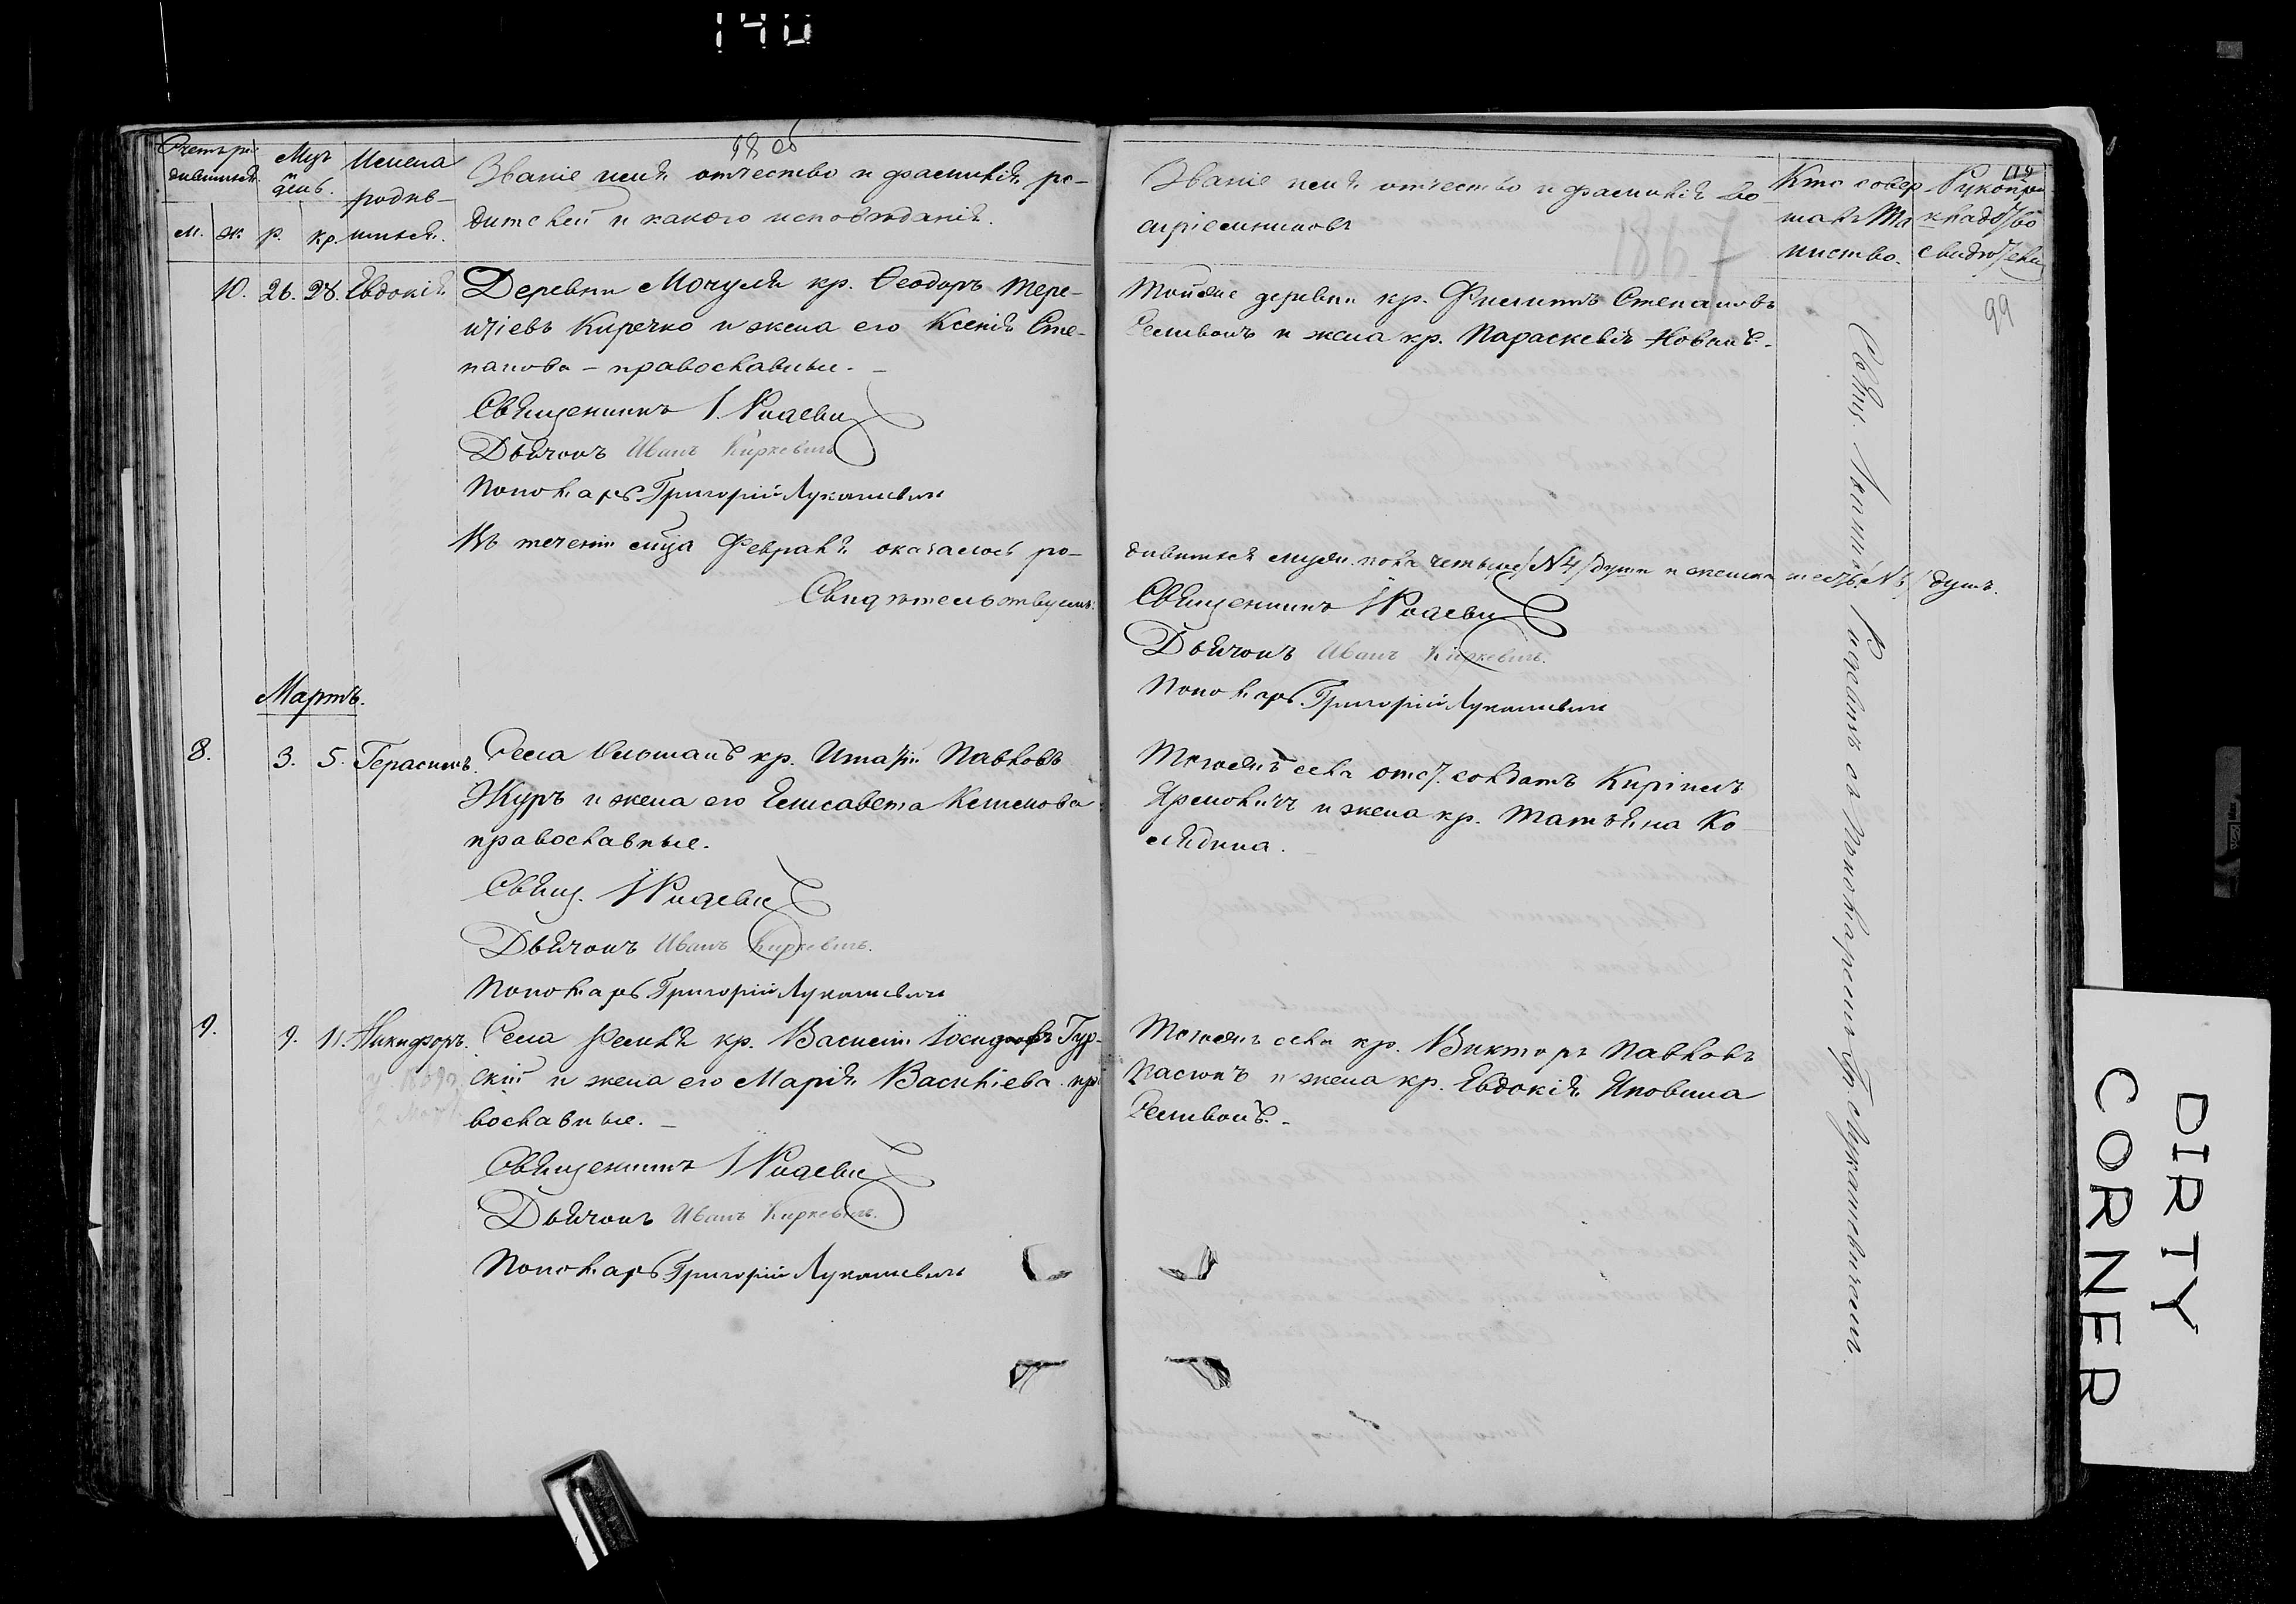 140
98 об
Счетъ ро-
дившихся.
Мцъ
и
день.
Имена
родив-
шихся.
Званіе имя отчество и фамилія ро-
дителей и какого исповѣданія.
м. ж. р. кр.
10. 26. 28. Евдокія.
Деревни Мочуля кр. Ѳеодоръ Тере-
нтіевъ Киречко и жена его Ксенія Сте-
панова – православные. –
Священникъ І
Дьячокъ Иванъ Киркевичъ
Пономарь Григорій Лукашевичъ
Въ теченіи мца Февраля оказалось ро-
Свидѣтельствуемъ:
Мартъ.
8. 3. 5. Герасимъ.
Села кр. Павловъ
Журъ и жена его Елисавета
православные.
Свящ. І
Дьячокъ Иванъ Киркевичъ.
Пономарь Григорій Лукашевичъ
9. 9. 11. Никифоръ.
Села кр. Василій Гур-
скій и жена его Марія Васильева пра
вославные. –
Священникъ І
Дьячокъ Иванъ Киркевичъ.
Пономарь Григорій Лукашевичъ
Званіе имя отчество и фамилія во-
спріемниковъ
1867
Кто совер
шалъ Та
инство.
Рукопри
кладство
свидѣтелей
99
Тойже деревни кр. Филиппъ Степановъ
Селивонъ и жена кр. Параскевія
дившихся муж. пола четыре /N4/ душъ и женска душъ.
Священникъ І
Дьячокъ Иванъ Киркевичъ.
Пономарь Григорій Лукашевичъ
Тогожъ села отст. солдатъ Кириллъ
Ярмоличъ и жена кр. Татьяна Ко
лядина.
Тогожъ села кр. Викторъ Павловъ
Пасюкъ и жена кр. Евдокія Яковина
Селивонъ. –
Свящ. съ Пономаремъ Гр. Лукашевичемъ.
DIRTY
CORNER